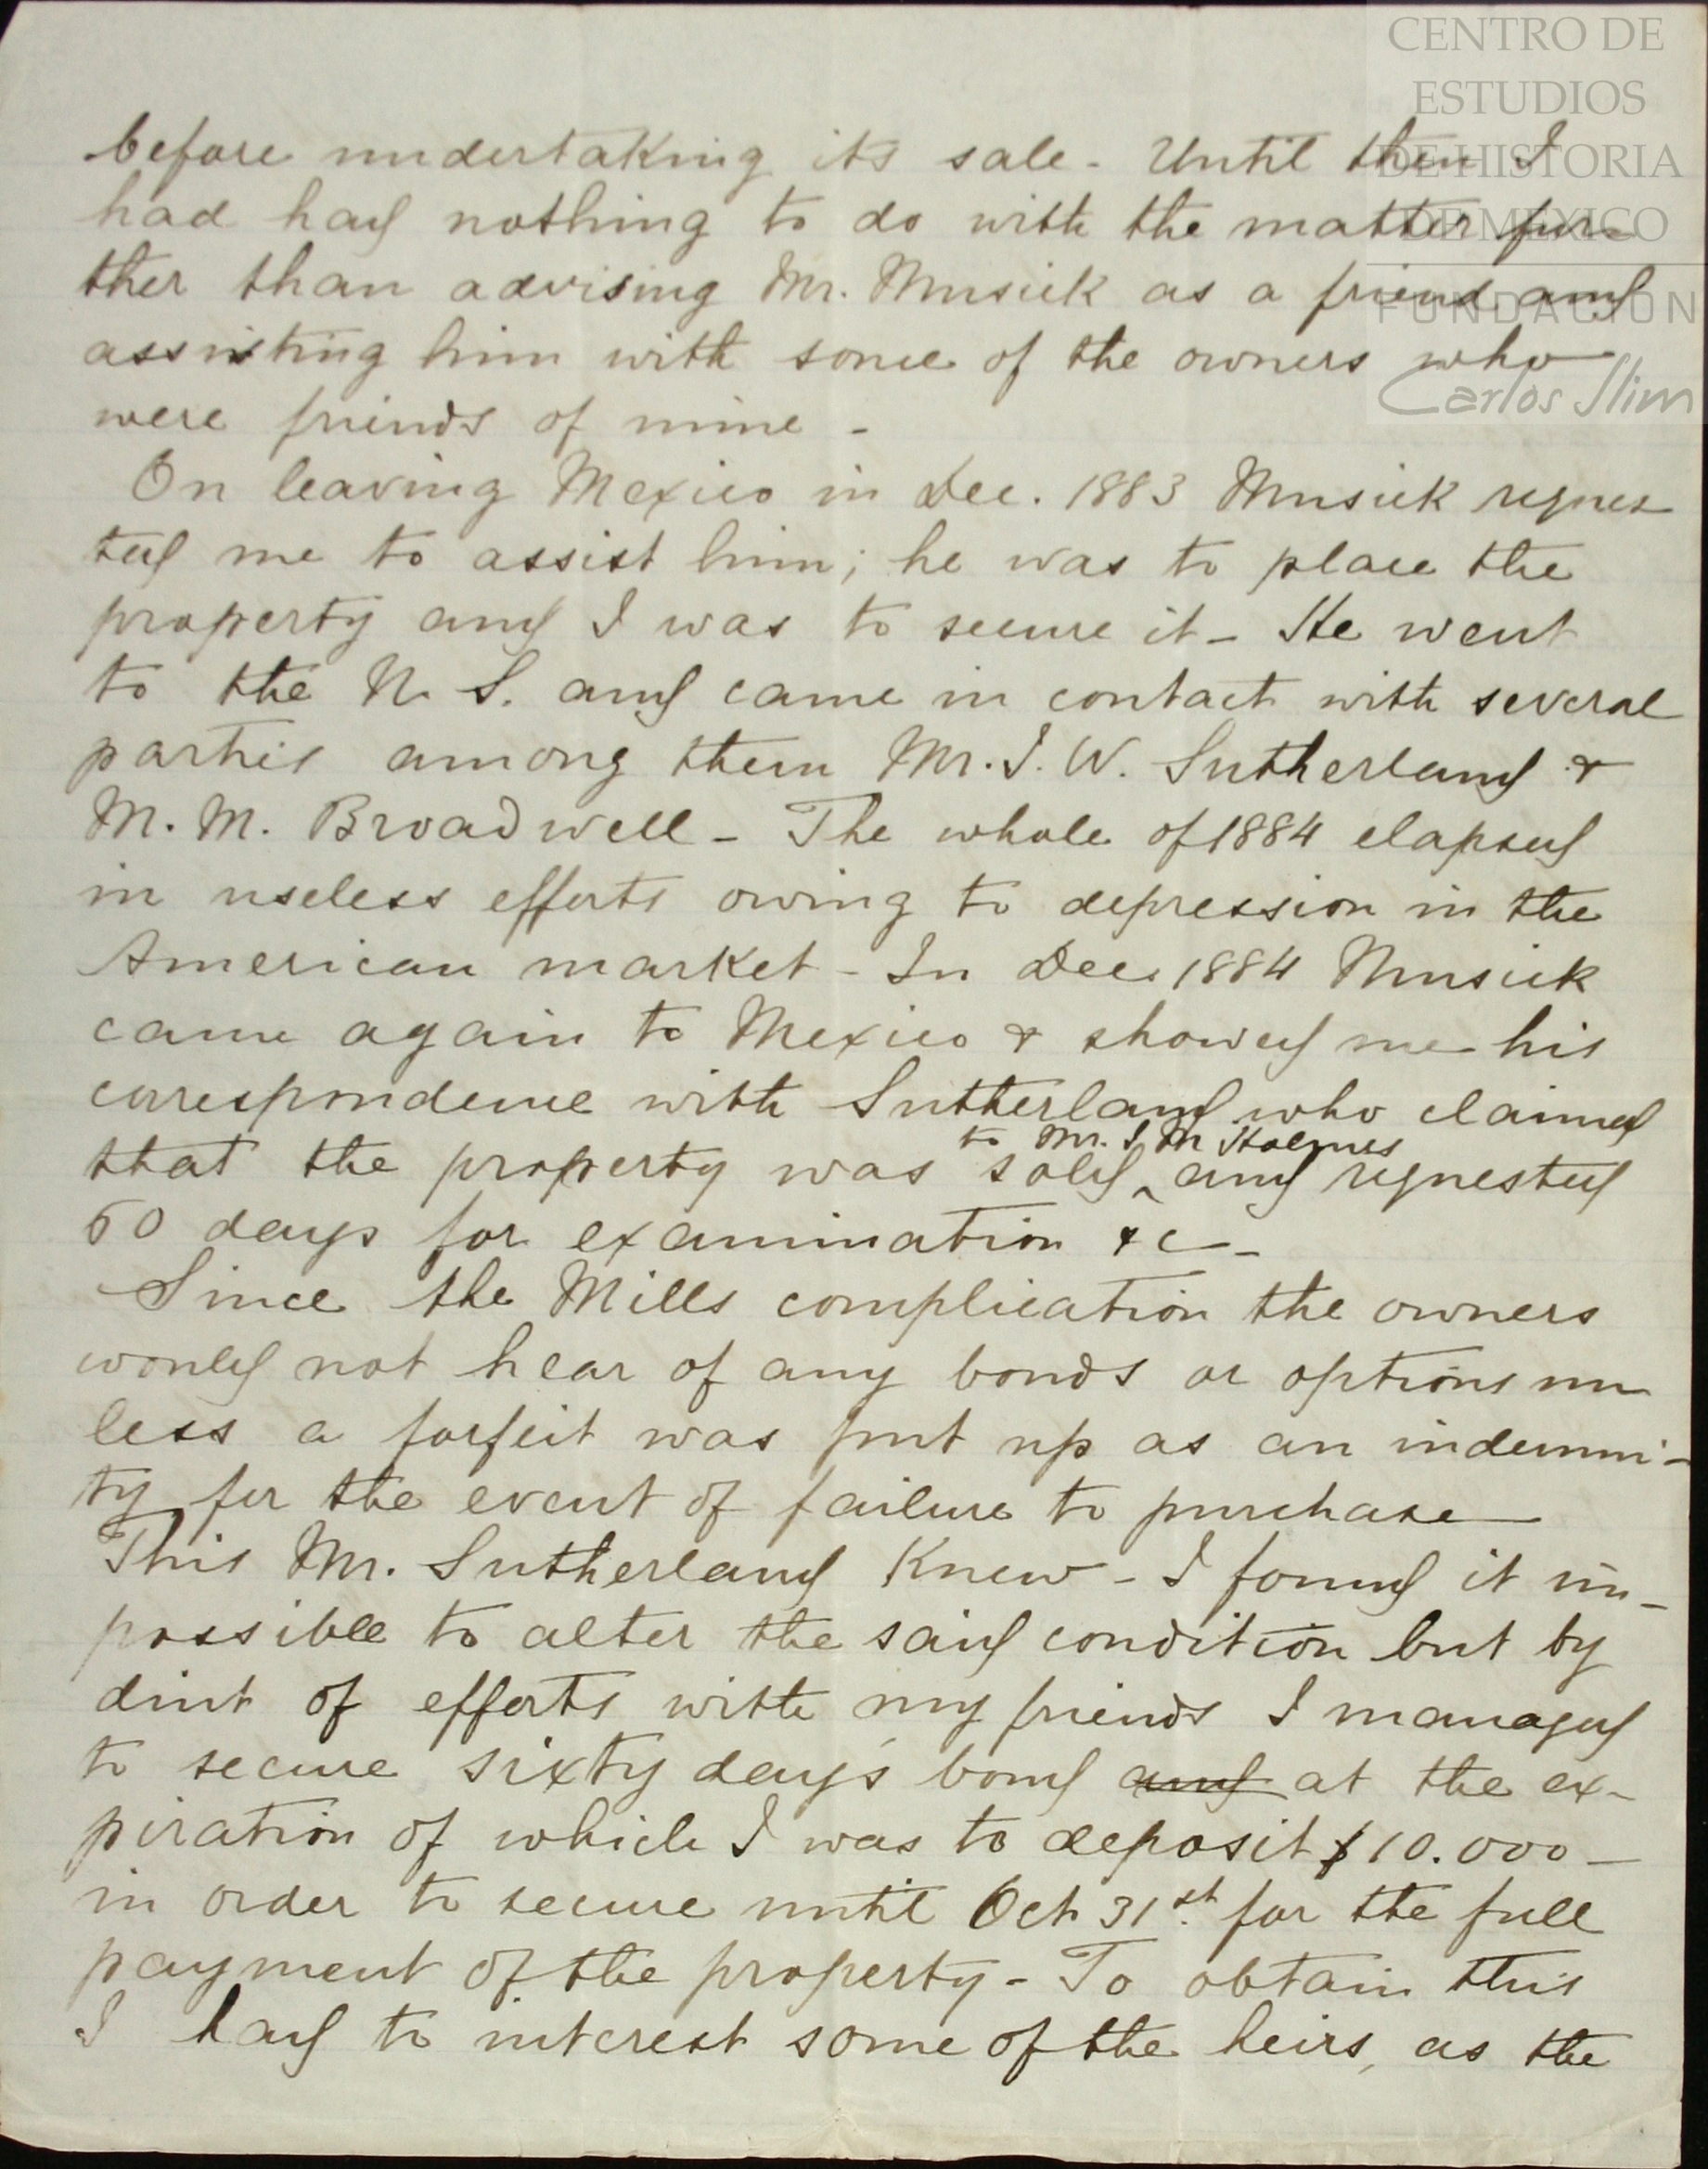 CENTRO DE
ESTUDIOS
DE HISTORIA
DE MEXICO
FUNDACION
Carlos Slim
before undertaking its sale - Until then I
had had nothing to do with the matter fur-
ther than advising Mr. Musick as a friend and
assisting him with some of the owners who
were friends of mine -
On leaving Mexico in Dec. 1883 Musick reques
ted me to assist him; he was to place the
property and I was to secure it - He went
to the U. S. and came in contact with several
parties among them Mr. I. W. Sutherland &
M. M. Broadwell - The whole of 1884 elapsed
in useless efforts owing to depression in the
American market - In Dec. 1884 Musick
came again to Mexico & showed me his
correspondence with Sutherland who claimed
to Mr. I. M Holmes
that the property was sold ‸ and requested
60 days for examination &c -
Since the Mills complication the owners
would not hear of any bonds or options un
less a forfeit was put up as an indemni-
ty for the event of failure to purchase
This Mr. Sutherland Knew - I found it im-
possible to alter the said condition but by
dint of efforts with my friends I managed
to secure sixty day's bond and at the ex-
piration of which I was to deposit $10.000 -
in order to secure until Oct 31st. for the full
payment of the property - To obtain this
I had to interest some of the heirs, as the